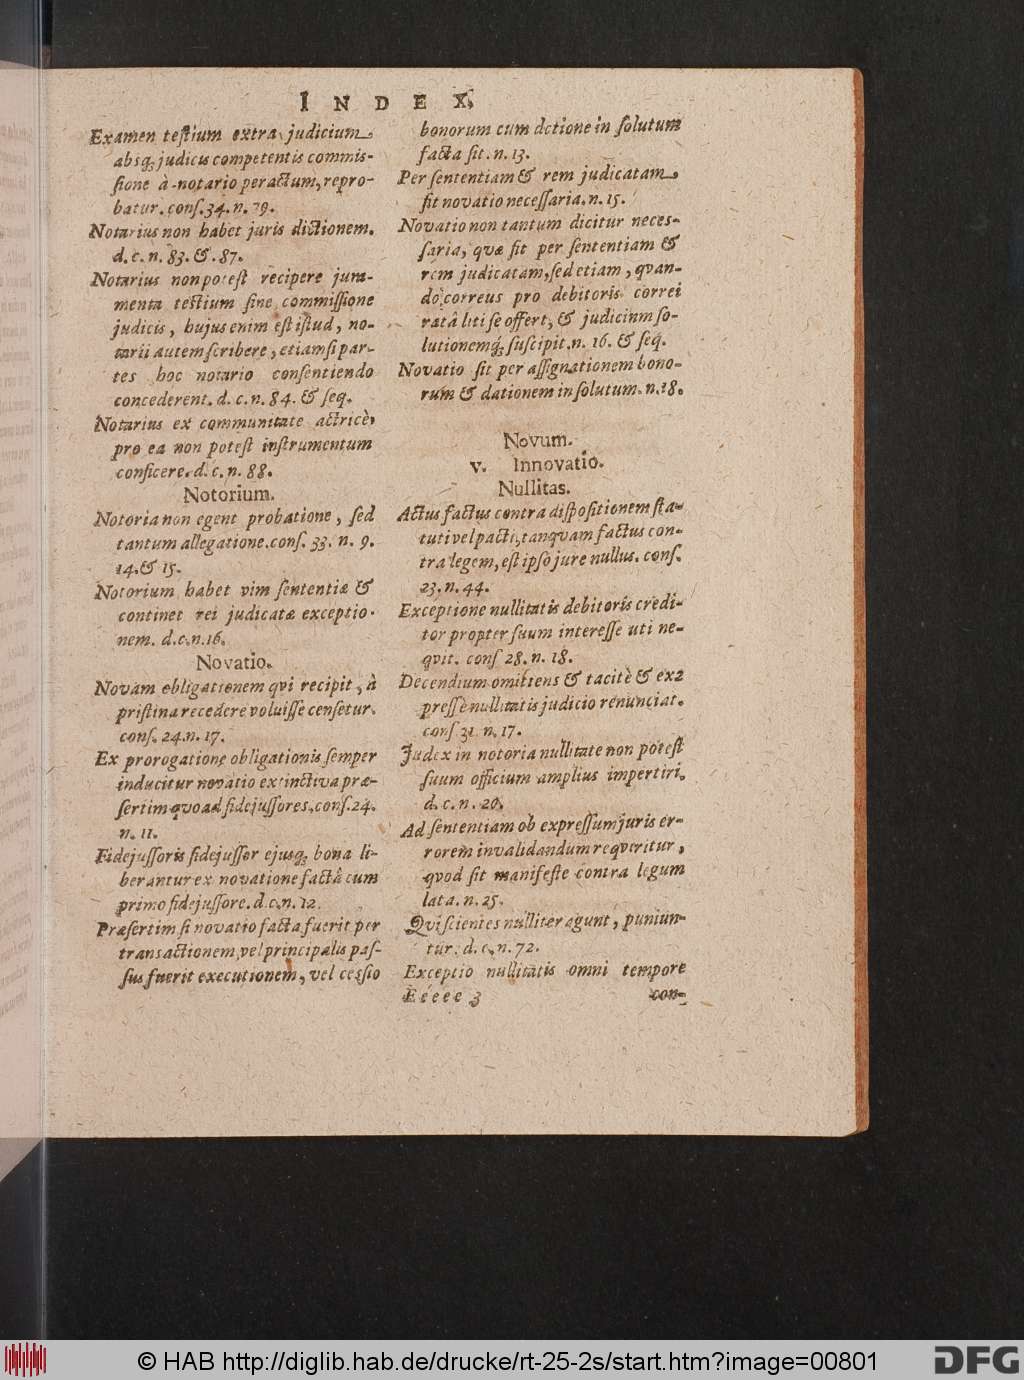 INDEX.
Examen testium extra judicium,
absq; judicis competentis commis-
sione à notario peractum, repro-
batur. cons. 34. n. 79.
Notarius non habet juris dictionem.
d. c. n. 83. & . 87.
Notarius non potest recipere jura-
menta testium sine commissione
judicis, hujus enim est istud, no-
tarii autem scribere, etiamsi par-
tes hoc notario consentiendo
concederent. d. c. n. 84. & seq.
Notarius ex communitate actrice,
pro ea non potest instrumentum
conficere. d. c. n. 88.
Notorium.
Notoria non egent probatione, sed
tantum allegatione. cons. 33. n. 9.
14. & 15.
Notorium habet vim sententiæ &
continet rei judicatæ exceptio-
nem. d. c. n. 16.
Novatio.
Novam obligationem qvi recipit, à
pristina recedere voluisse censetur.
cons. 24. n. 17.
Ex prorogatione obligationis semper
inducitur novatio extinctiva præ-
sertim quoad fidejussores. cons. 24.
n. 11.
Fidejussoris fidejussor ejusq; bona li-
berantur ex novatione factâ cum
primo fidejussore. d. c. n. 12.
Præsertim si novatio facta fuerit per
transactionem vel principalis pas-
sus fuerit executionem, vel cessio
bonorum cum dctione in solutum
facta sit. n. 13.
Per sententiam & rem judicatam,
fit novatio necessaria. n. 15.
Novatio non tantum dicitur neces-
saria, quæ fit per sententiam &
rem judicatam, sed etiam, qvan-
do correus pro debitoris correi
ratâ liti se offert, & judicium so-
lutionemq; suscipit. n. 16. & seq.
Novatio fit per assignationem bono-
rum & dationem in solutum. n. 18.
Novum.
v. Innovatio.
Nullitas.
Actus factus contra dispositionem sta-
tuti vel pacti, tanquam factus con-
tra legem, est ipso jure nullus. cons.
23. n. 44.
Exceptione nullitatis debitoris credi-
tor propter suum interesse uti ne-
qvit. cons 28. n. 18.
Decendium omittens & tacitè & ex2
pressè nullitatis judicio renunciat.
cons 31. n. 17.
Judex in notoria nullitate non potest
suum officium amplius impertiri.
d. c. n. 20.
Ad sententiam ob expressum juris er-
rorem invalidandum reqvritur,
qvod sit manifeste contra legum
lata. n. 25.
Qvi scientes nulliter agunt, puniun-
tur. d. c. n. 72.
Exceptio nullitatis omni tempore
Eeeee 3 con-
© HAB http://diglib.hab.de/drucke/rt-25-2s/start.htm?image=00801
DFG